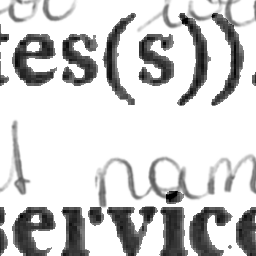 tes(s)).
t nam
service